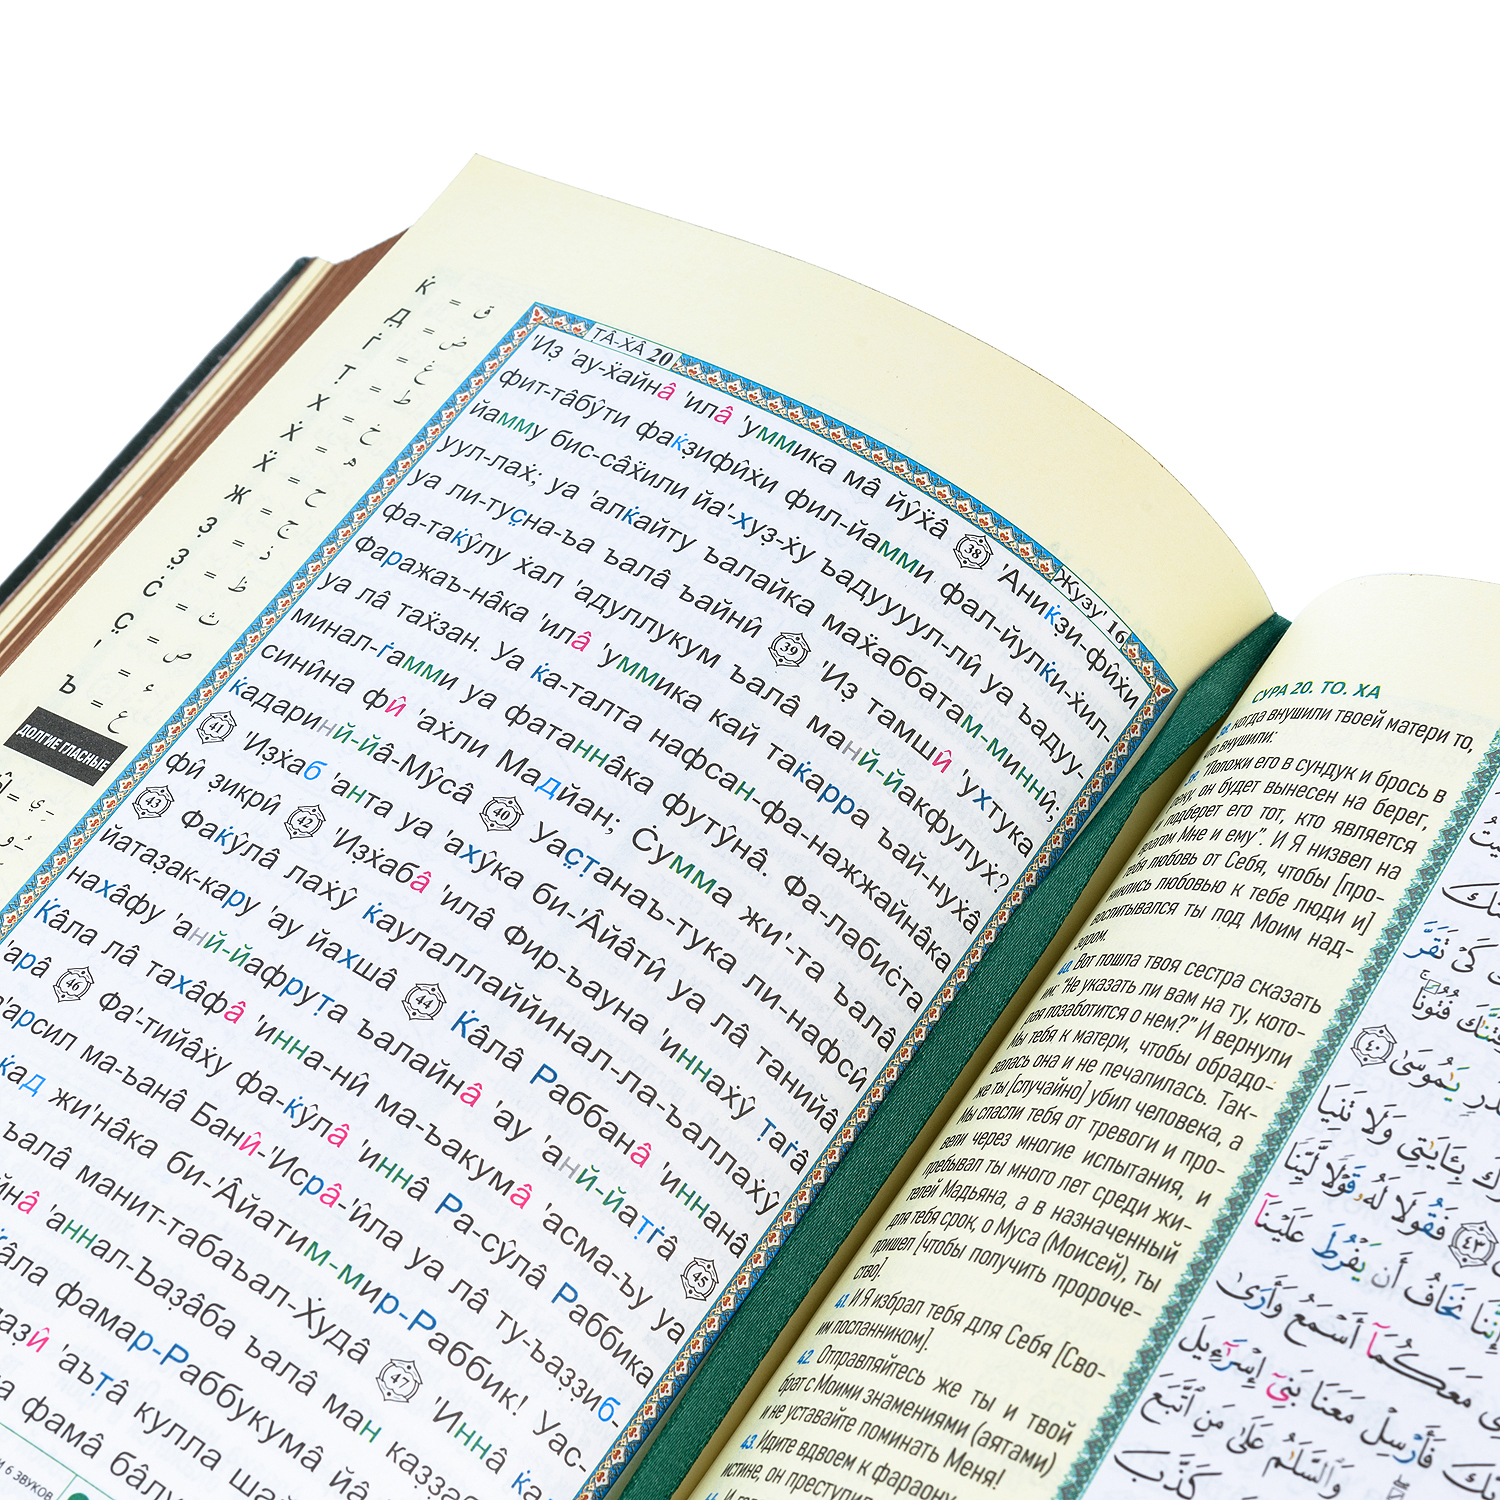 Ḳ = ق
Д̣ = ض
Г̇ = غ
Т̣ = ط
Х = خ
Х̇ = ه
Х̈ = ح
Ж = ج
З̣ = ذ
З̤ = ظ
С̇ = ث
Ç = ص
' = ء
Ъ = ع
ДОЛГИЕ ГЛАСНЫЕ
ТÂ-Х̇Â 20
Жузу' 16
'Из̣ 'ау-х̈айнâ 'илâ 'уммика мâ йӯх̈â 38 'Аникз̣и-фӣх̇и
фит-тâбӯти фак̇з̣ифӣх̇и фил-йамми фал-йулк̇и-х̇ил-
йамму бис-сâх̈или йа'-хуз̣-х̇у ъадуууул-лӣ уа ъадуу-
уул-лах̇; уа 'алк̇айту ъалайка мах̈аббатам-миннӣ;
уа ли-туçна-ъа ъалâ ъайнӣ 39 'Из̣ тамшӣ 'ухтука
фа-так̇ӯлу х̇ал 'адуллукум ъалâ манй-йакфулух̇?
фаражаъ-нâка 'илâ 'уммика кай так̇арра ъай-нух̇â
уа лâ тах̈зан. Уа к̇а-талта нафсан-фа-нажжайнâка
минал-г̇амми уа фатаннâка футӯнâ. Фа-лабис̇та
синӣна фӣ 'ах̇ли Мадйан; С̇умма жи'-та ъалâ
к̇адаринй-йâ-Мӯсâ 40 Уаçт̣анаъ-тука ли-нафсӣ
41 'Из̣х̇аб 'анта уа 'ахӯка би-'Âйâтӣ уа лâ танийâ
фӣ з̣икрӣ 42 'Из̣х̇абâ 'илâ Фир-ъауна 'иннах̇ӯ т̣аг̇â
43 Фак̇ӯлâ лах̇ӯ к̇аулаллаййинал-ла-ъаллах̇ӯ
йатаз̣ак-кару 'ау йахшâ 44 К̇âлâ Раббанâ 'иннанâ
нахâфу 'анй-йафрут̣а ъалайнâ 'ау 'анй-йат̣г̇â 45
К̇âла лâ тахâфâ 'инна-нӣ ма-ъакумâ 'асма-ъу уа
'арâ 46 Фа'-тийâх̇у фа-к̇ӯлâ 'иннâ Ра-сӯлâ Раббика
'арсил ма-ъанâ Банӣ-'Исрâ-'ӣла уа лâ ту-ъаз̣з̣иб-
к̇ад жи'нâка би-'Âйатим-мир-Раббик! Уас-
ъалâ манит-табаъал-Х̇удâ 47 'Иннâ к̇а-
'аннал-Ъаз̣âба ъалâ ман каз̣з̣а
к̇âла фамар-Раббукумâ йâ
'аът̣â кулла
фамâ бâлу
СУРА 20. ТО. ХА
когда внушили твоей матери то,
внушили:
"Положи его в сундук и брось в
он будет вынесен на берег,
подберет его тот, кто является
врагом Мне и ему". И Я низвел на
тебя любовь от Себя, чтобы [про-
никлись любовью к тебе люди и]
воспитывался ты под Моим над-
зором.
40. Вот пошла твоя сестра сказать
им: "Не указать ли вам на ту, кото-
рая позаботится о нем?" И вернули
Мы тебя к матери, чтобы обрадо-
валась она и не печалилась. Так-
же ты [случайно] убил человека, а
Мы спасли тебя от тревоги и про-
вели через многие испытания, и
пребывал ты много лет среди жи-
телей Мадьяна, а в назначенный
для тебя срок, о Муса (Моисей), ты
пришел [чтобы получить пророче-
ство].
41. И Я избрал тебя для Себя [Сво-
им посланником].
42. Отправляйтесь же ты и твой
брат с Моими знамениями (аятами)
и не уставайте поминать Меня!
43. Идите вдвоем к фараону
истине, он преступил
كَىْ تَقَرَّ
فُتُونًا
يَٰمُوسَىٰ ٤٠
بِـَٔايَٰتِى وَلَا تَنِيَا
فَقُولَا لَهُۥ قَوْلًا لَّيِّنًا
٤٣
نَخَافُ أَن يَفْرُطَ عَلَيْنَآ
مَعَكُمَآ أَسْمَعُ وَأَرَىٰ
فَأَرْسِلْ مَعَنَا بَنِىٓ إِسْرَٰٓءِيلَ
وَٱلسَّلَٰمُ عَلَىٰ مَنِ ٱتَّبَعَ
كَذَّبَ
И 6 ЗВУКОВ